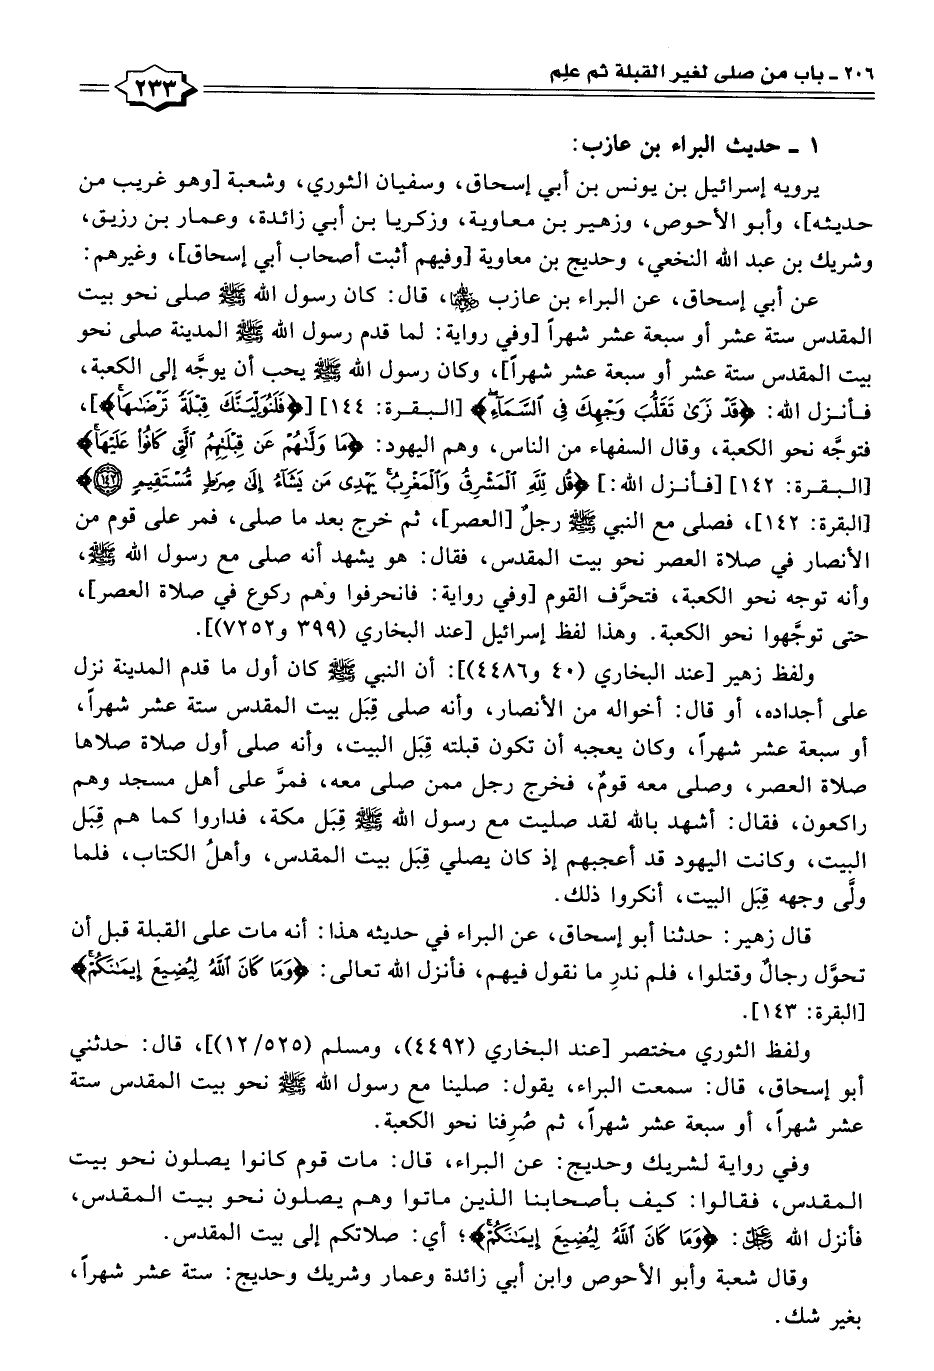 ٢٠٦ - باب من صلى لغير القبلة ثم علم
٢٣٣
١ - حديث البراء بن عازب:
يرويه إسرائيل بن يونس بن أبي إسحاق، وسفيان الثوري، وشعبة [وهو غريب من
حديثه]، وأبو الأحوص، وزهير بن معاوية، وزكريا بن أبي زائدة، وعمار بن رزيق،
وشريك بن عبد الله النخعي، وحديج بن معاوية [وفيهم أثبت أصحاب أبي إسحاق]، وغيرهم:
عن أبي إسحاق، عن البراء بن عازب ﵁، قال: كان رسول الله ﷺ صلى نحو بيت
المقدس ستة عشر أو سبعة عشر شهراً [وفي رواية: لما قدم رسول الله ﷺ المدينة صلى نحو
بيت المقدس ستة عشر أو سبعة عشر شهراً]، وكان رسول الله ﷺ يحب أن يوجَّه إلى الكعبة،
فأنزل الله: ﴿قَدْ نَرَىٰ تَقَلُّبَ وَجْهِكَ فِي ٱلسَّمَآءِۖ﴾ [البقرة: ١٤٤] [﴿فَلَنُوَلِّيَنَّكَ قِبْلَةً تَرْضَىٰهَاۚ﴾]،
فتوجَّه نحو الكعبة، وقال السفهاء من الناس، وهم اليهود: ﴿مَا وَلَّىٰهُمْ عَن قِبْلَتِهِمُ ٱلَّتِي كَانُوا۟ عَلَيْهَاۚ﴾
[البقرة: ١٤٢] [فأنزل الله:] ﴿قُل لِّلَّهِ ٱلْمَشْرِقُ وَٱلْمَغْرِبُۚ يَهْدِي مَن يَشَآءُ إِلَىٰ صِرَٰطٍ مُّسْتَقِيمٍ ١٤٢﴾
[البقرة: ١٤٢]، فصلى مع النبي ﷺ رجلٌ [العصر]، ثم خرج بعد ما صلى، فمر على قوم من
الأنصار في صلاة العصر نحو بيت المقدس، فقال: هو يشهد أنه صلى مع رسول الله ﷺ،
وأنه توجه نحو الكعبة، فتحرَّف القوم [وفي رواية: فانحرفوا وهم ركوع في صلاة العصر]،
حتى توجَّهوا نحو الكعبة. وهذا لفظ إسرائيل [عند البخاري (٣٩٩ و٧٢٥٢)].
ولفظ زهير [عند البخاري (٤٠ و٤٤٨٦)]: أن النبي ﷺ كان أول ما قدم المدينة نزل
على أجداده، أو قال: أخواله من الأنصار، وأنه صلى قِبَل بيت المقدس ستة عشر شهراً،
أو سبعة عشر شهراً، وكان يعجبه أن تكون قبلته قِبَل البيت، وأنه صلى أول صلاة صلاها
صلاة العصر، وصلى معه قومٌ، فخرج رجل ممن صلى معه، فمرَّ على أهل مسجد وهم
راكعون، فقال: أشهد بالله لقد صليت مع رسول الله ﷺ قِبَل مكة، فداروا كما هم قِبَل
البيت، وكانت اليهود قد أعجبهم إذ كان يصلي قِبَل بيت المقدس، وأهلُ الكتاب، فلما
ولَّى وجهه قِبَل البيت، أنكروا ذلك.
قال زهير: حدثنا أبو إسحاق، عن البراء في حديثه هذا: أنه مات على القبلة قبل أن
تحوَّل رجالٌ وقتلوا، فلم ندرِ ما نقول فيهم، فأنزل الله تعالى: ﴿وَمَا كَانَ ٱللَّهُ لِيُضِيعَ إِيمَٰنَكُمْۚ﴾
[البقرة: ١٤٣].
ولفظ الثوري مختصر [عند البخاري (٤٤٩٢)، ومسلم (١٢/٥٢٥)]، قال: حدثني
أبو إسحاق، قال: سمعت البراء، يقول: صلينا مع رسول الله ﷺ نحو بيت المقدس ستة
عشر شهراً، أو سبعة عشر شهراً، ثم صُرِفنا نحو الكعبة.
وفي رواية لشريك وحديج: عن البراء، قال: مات قوم كانوا يصلون نحو بيت
المقدس، فقالوا: كيف بأصحابنا الذين ماتوا وهم يصلون نحو بيت المقدس،
فأنزل الله ﷿: ﴿وَمَا كَانَ ٱللَّهُ لِيُضِيعَ إِيمَٰنَكُمْۚ﴾؛ أي: صلاتكم إلى بيت المقدس.
وقال شعبة وأبو الأحوص وابن أبي زائدة وعمار وشريك وحديج: ستة عشر شهراً،
بغير شك.